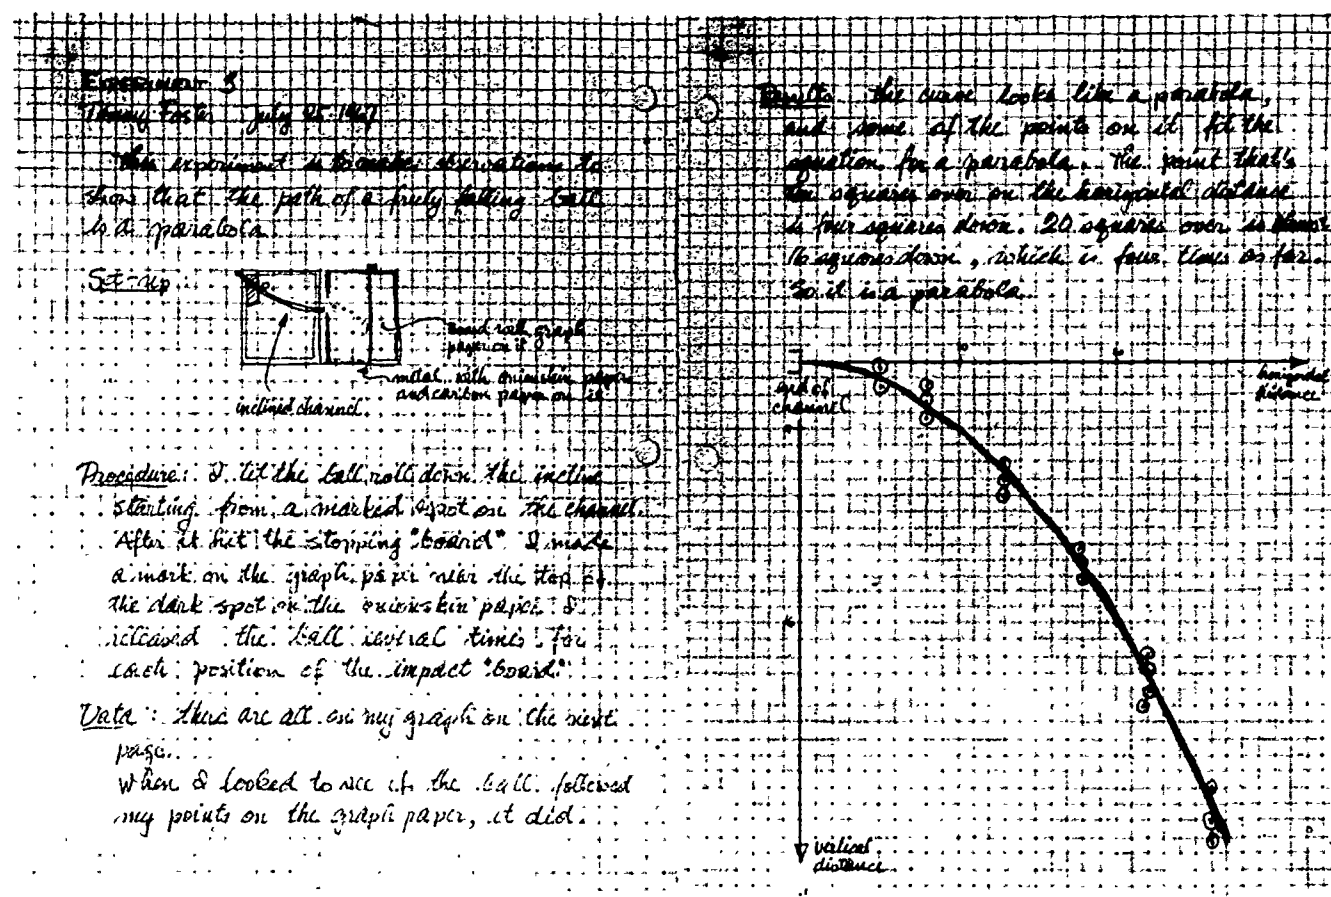 EXPERIMENT 3
Tommy Foster July 25 1967
This experiment is to make observations to
show that the path of a freely falling ball
is a parabola.
Set-up
board with graph
paper on it
metal with onionskin paper
and carbon paper on it
inclined channel.
Procedure: I let the ball roll down the incline
starting from a marked spot on the channel.
After it hit the stopping "board" I made
a mark on the graph paper near the top of
the dark spot on the onionskin paper. I
released the ball several times for
each position of the impact "board"
Data: these are all on my graph on the next
page.
When I looked to see if the ball followed
my points on the graph paper, it did.
Results the curve looks like a parabola,
and some of the points on it fit the
equation for a parabola. The point that's
ten squares over on the horizontal distance
is four squares down. 20 squares over is
16 squares down, which is four times as far.
So it is a parabola.
end of
channel
horizontal
distance
vertical
distance